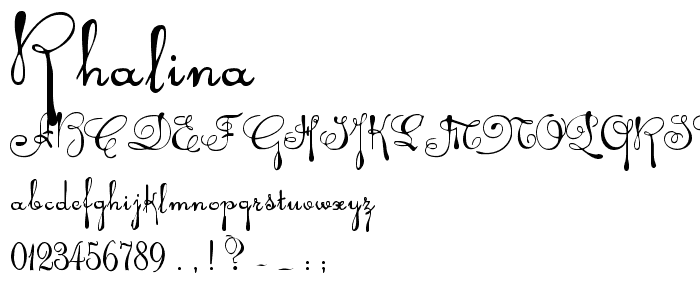 Rhalina
ABCDEFGHIJKLMNOPQRST
abcdefghijklmnopqrstuvwxyz
0123456789 . , ! ? - _ : ;